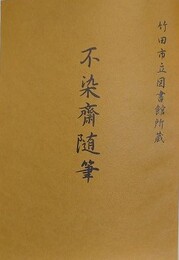 竹田市立図書館所蔵
不染齋随筆